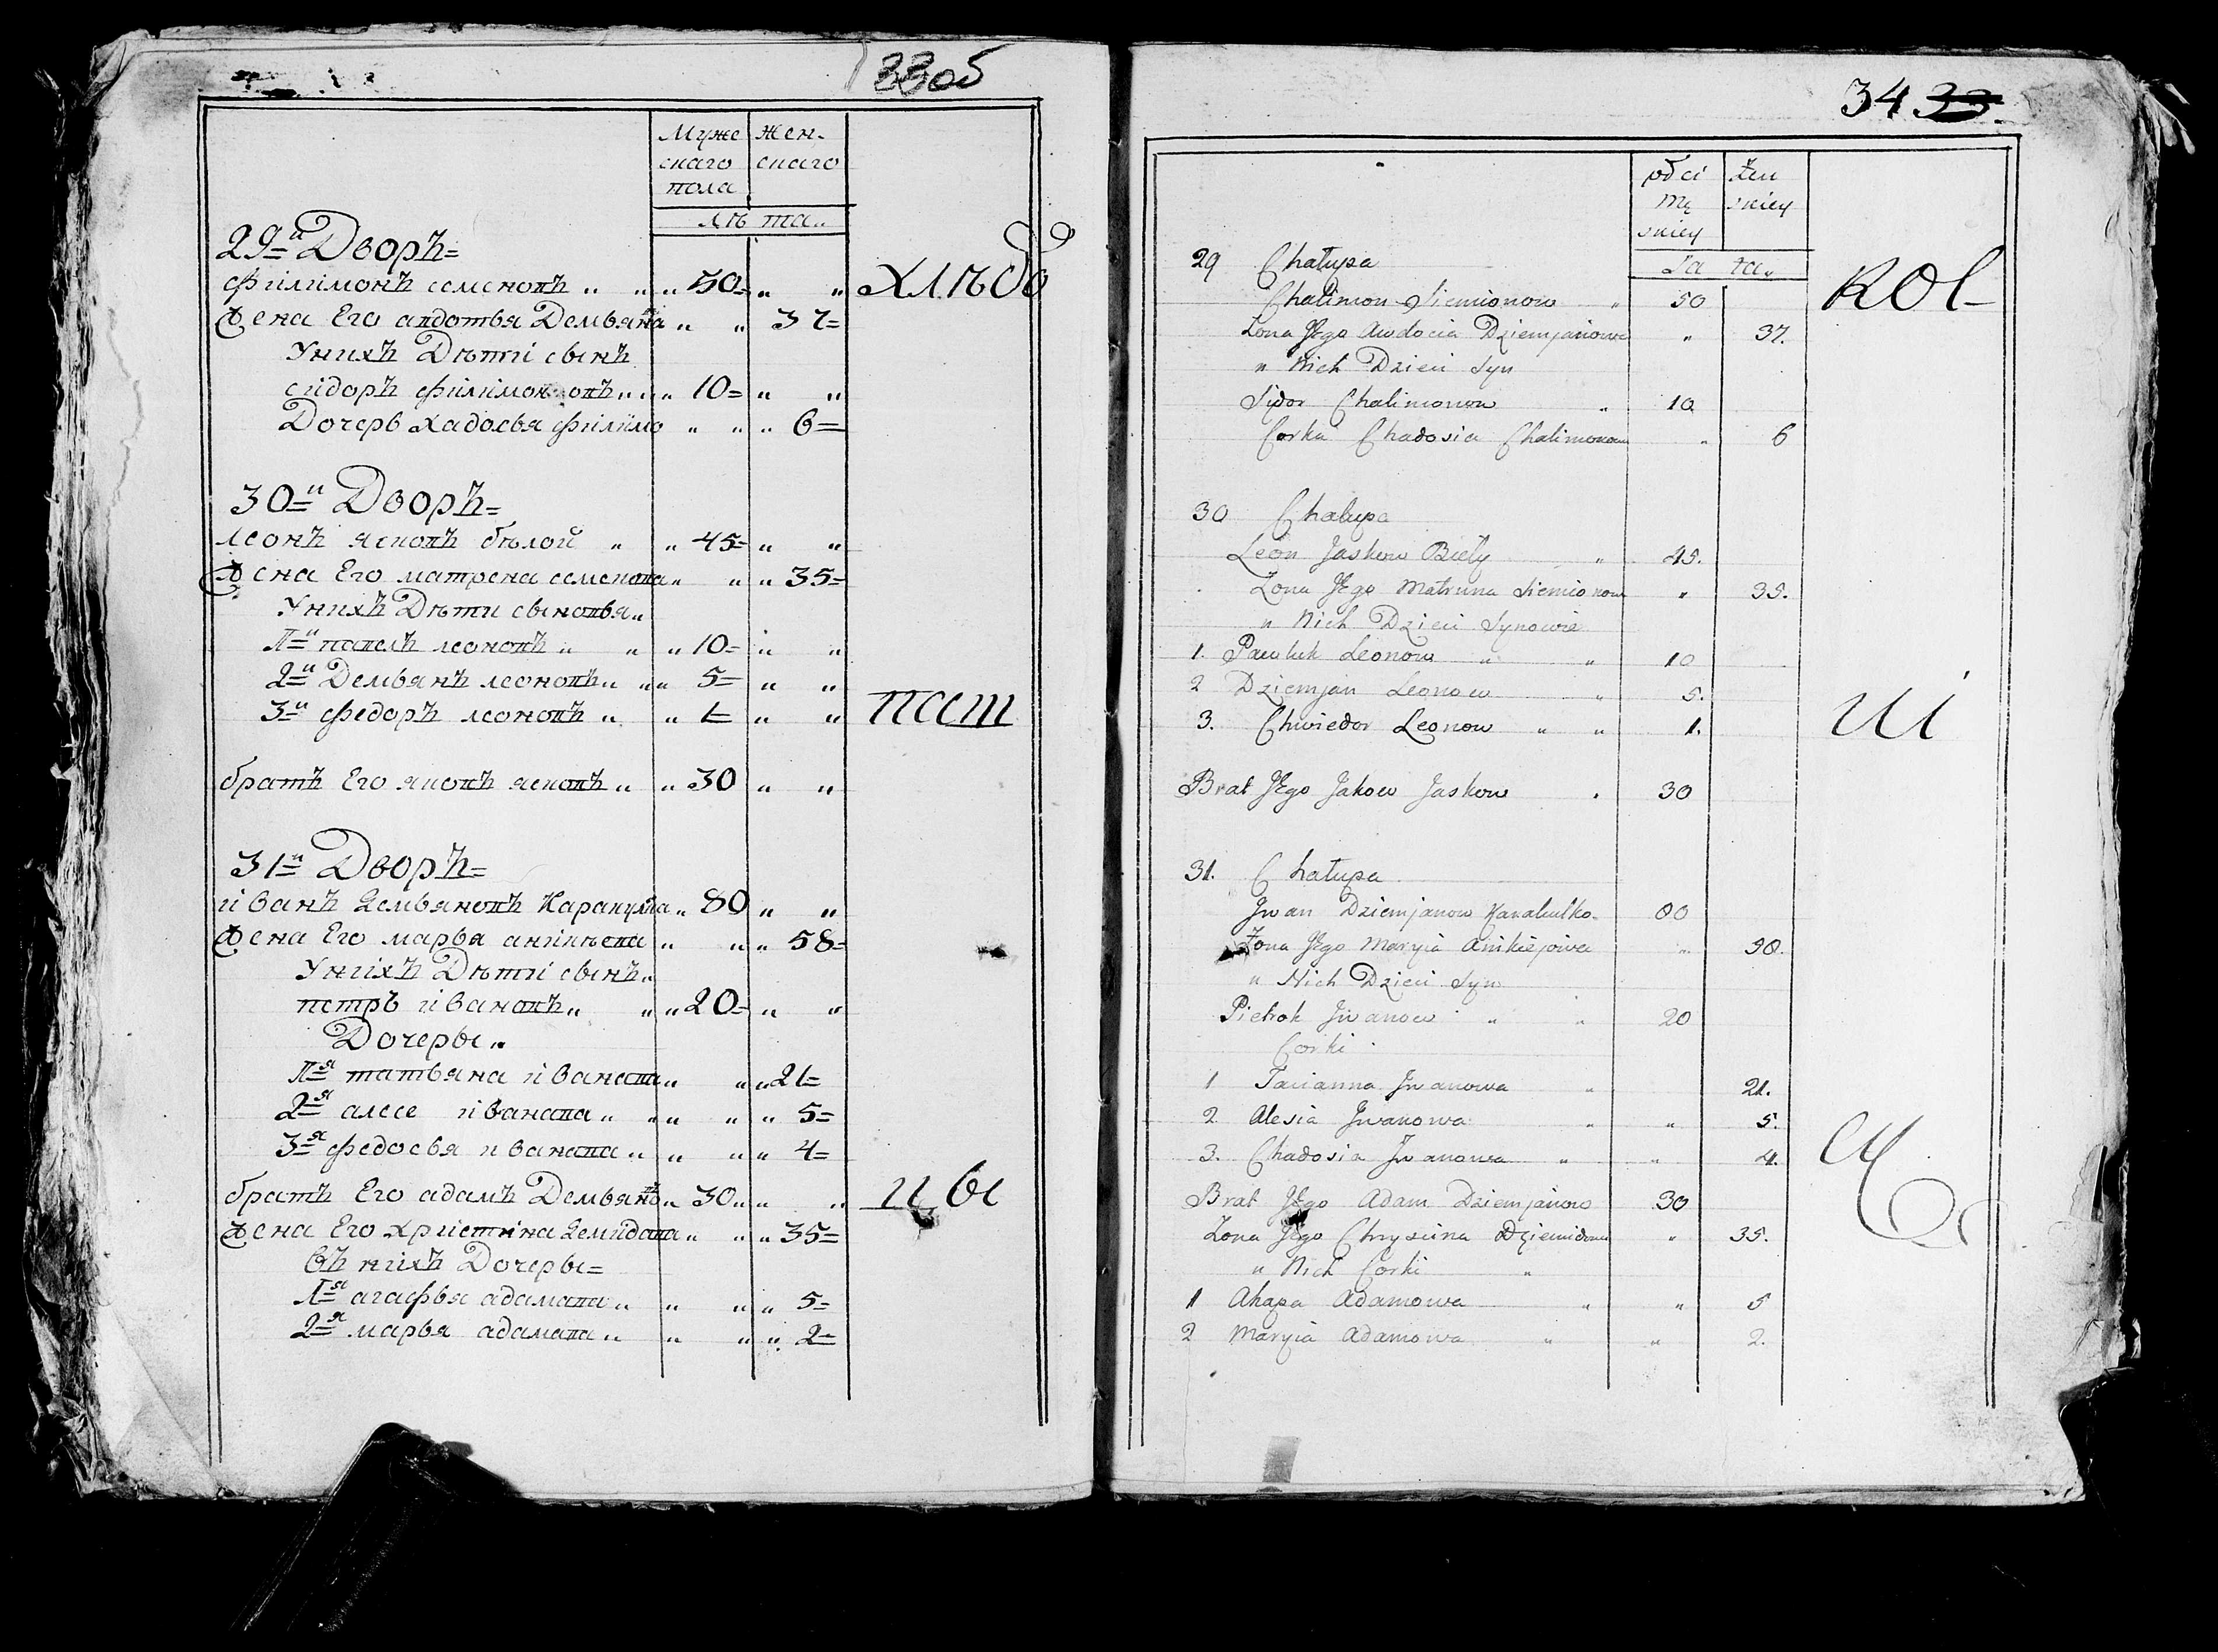 33об
Муже жен-
скаго скаго
пола
лѣ та„
29=й Дворъ=
Филимонъ семеновъ „ „ „ 50= „ „ хлѣбо
жена Его авдотья Демьяна „ „ 37=
Унихъ Дѣти сынъ
сидоръ филимоновъ „ „ „ 10= „ „
Дочерь хадосья филимо „ „ „ 6=
30=й Дворъ=
леонъ ясковъ бѣлой „ „ 45= „ „
жена Его матрена семенова „ „ „ 35=
Унихъ Дѣти сыновья„
1=й павелъ леоновъ „ „ „ 10= „ „
2=й Демьянъ леоновъ „ „ „ 5= „ „
3=й федоръ леоновъ „ „ 1= „ „ паш
братъ Его яковъ ясковъ „ „ 30 „ „
31=й Дворъ=
иванъ Демьяновъ Каракулка „ 80 „ „
жена Его марья аникѣева „ „ „ 58=
Унихъ Дѣти сынъ„
петръ ивановъ „ „ „ 20= „ „
Дочеры „
1=я татьяна иванава „ „ „ 21=
2=я алесе иванава „ „ „ „ „ 5=
3=я федосья иванава „ „ „ „ 4=
братъ Его адамъ Демьяновъ „ 30 „ „ „ „ цы
жена Его христина Демидава „ „ „ 35=
Въ нихъ Дочеры=
1=я агафья адамава „ „ „ „ 5=
2=я марья адамава „ „ „ „ 2=
34 33.
płci żeń
mę skiey
skiey
La ta„
29 Chałupa Rol-
Chalimon Siemionow „ 50
Zona Jego Awdocia Dziemjanowa „ 37.
u Nich Dzieci Syn
Sydor Chalimonow „ 10
Corka Chadosia Chalimonow „ 6
30 Chałupa
Leon Jaskow Biely „ 45.
Zona Jego Matruna Siemionow „ 35.
u Nich Dzieci Synowie
1. Pawluk Leonow „ „ 10
2 Dziemjan Leonow „ 5.
3. Chwiedor Leonow „ „ 1. ni
Brat Jego Jakow Jaskow „ 30
31. Chałupa
Jwan Dziemjanow Karakulko 80
Zona Jego Maryia Anikiejowa „ 58.
u Nich Dzieci Syn
Pietrok Jwanow „ „ 20
Corki
1 Tacianna Jwanowa „ 21.
2 Alesia Jwanowa „ „ 5.
3. Chadosia Jwanowa „ „ 4.
Brat Jego Adam Dziemjanow 30
Zona Jego Chryscina Dziemidowa „ 35.
u Nich Corki „
1 Ahapa Adamowa „ „ 5
2 Maryia Adamowa „ „ 2.